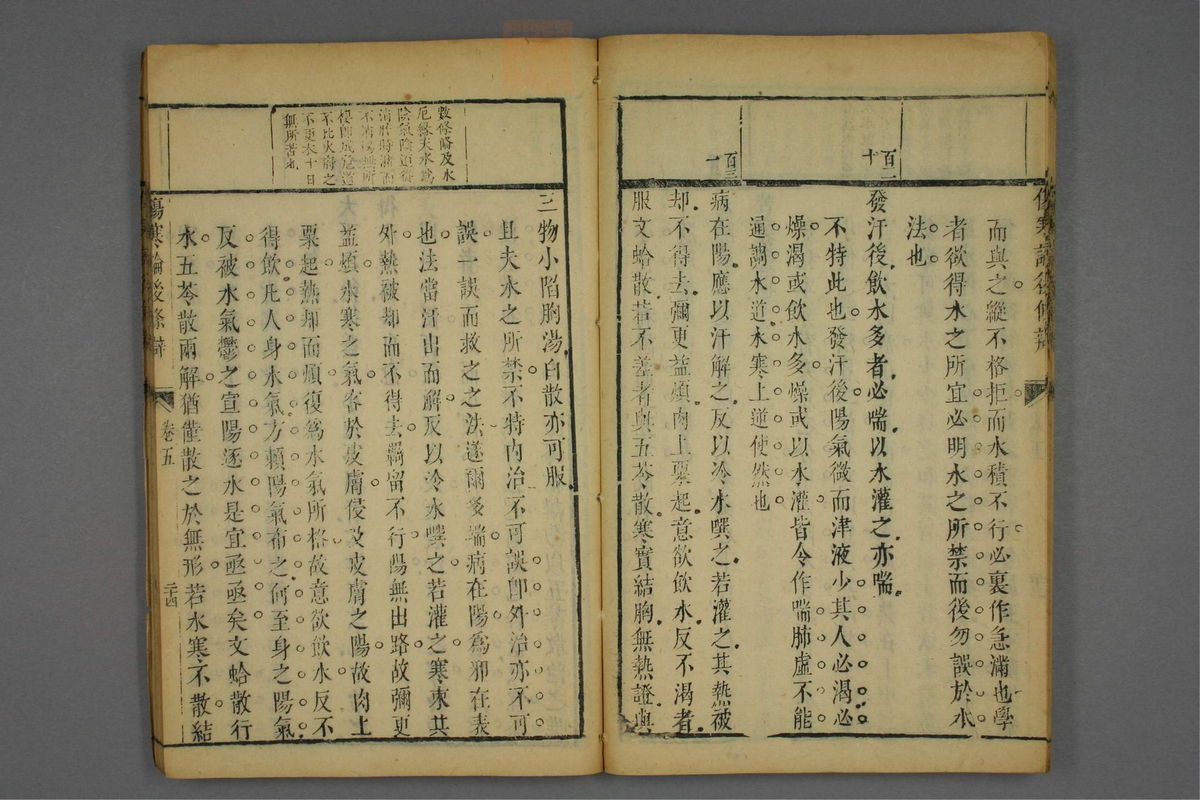 傷寒論後條辨
百二十
百三一
而與之縱不格拒而水積不行必裏作急滿也學
者欲得水之所宜必明水之所禁而後勿誤於水
法也
發汗後飲水多者必喘以水灌之亦喘
不特此也發汗後陽氣微而津液少其人必渴必
燥渴或飲水多燥或以水灌皆令作喘肺虛不能
通調水道水寒上逆使然也
病在陽應以汗解之反以冷水潠之若灌之其熱被
却不得去彌更益煩肉上粟起意欲飲水反不渴者
服文蛤散若不差者與五苓散寒實結胸無熱證與
數條略及水
厄緣天水爲
陰氣陰道從
不比火府之
不更衣十日
無所苦也
三物小陷胸湯白散亦可服
且夫水之所禁不特內治不可誤即外治亦不可
誤一誤而救之之法遂爾多端病在陽爲邪在表
也法當汗出而解反以冷水潠之若灌之寒束其
外熱被却而不得去羈留不行陽無出路故彌更
益煩水寒之氣客於皮膚侵及皮膚之陽故肉上
粟起熱却而煩復爲水氣所格故意欲飲水反不
得飲凡人身水氣方賴陽氣布之何至身之陽氣
反被水氣鬱之宣陽逐水是宜亟亟矣文蛤散行
水五苓散兩解猶僅散之於無形若水寒不散結
傷寒論後條辯
卷五
二十四